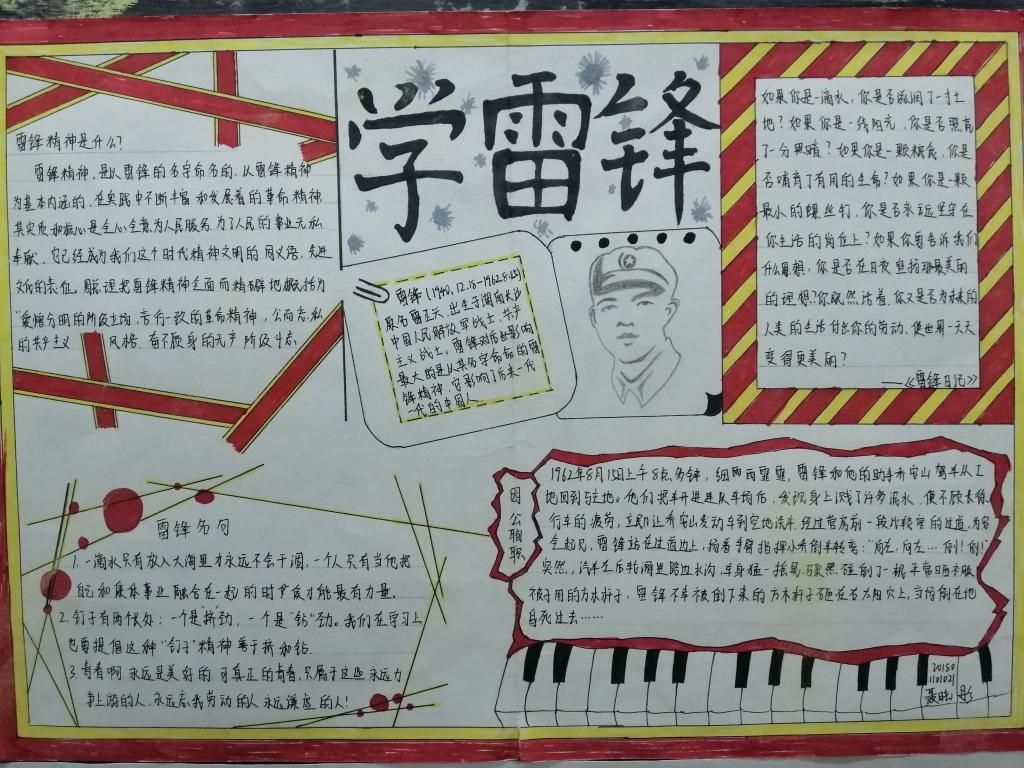 学雷锋
雷锋精神是什么?
雷锋精神,是以雷锋的名字命名的,以雷锋精神
为基本内涵的,在实践中不断丰富和发展着的革命精神
其实质和核心是全心全意为人民服务为了人民的事业无私
奉献,它已经成为我们这个时代精神文明的同义语、先进
文化的表征。周总理把雷锋精神全面而精确地概括为
“爱憎分明的阶级立场,言行一致的革命精神,公而忘私
的共产主义 风格,奋不顾身的无产阶级斗志
雷锋(1940.12.18-1962.8.15)
原名雷正兴,出生于湖南长沙
中国人民解放军战士,共产
主义战士。雷锋对后世影响
最大的是以其名字命命的雷
锋精神,它影响了后来一代
一代的中国人
如果你是一滴水,你是否滋润了一寸土
地?如果你是一线阳光,你是否照亮
了一分黑暗?如果你是一颗粮食,你是
否哺育了有用的生命?如果你是一颗
最小的螺丝钉,你是否永远坚守在
你生活的岗位上?如果你要告诉我们
什么思想,你是否在日夜宣扬那最美丽
的理想?你既然活着,你又是否为未来的
人类的生活付出你的劳动,使世界一天天
变得更美丽?
——《雷锋日记》
雷锋名句
1.一滴水只有放入大海里才永远不会干涸,一个人只有当他把
自己和集体事业融合在一起的时候才能最有力量。
2.钉子有两个长处:一个是“挤”劲,一个是“钻”劲。我们在学习上
也要提倡这种“钉子”精神善于挤和钻.
3.青春啊,永远是美好的,可真正的青春,只属于这些永远力
争上游的人,永远忘我劳动的人永远谦虚的人!
因公殉职
1962年8月15日上午8点多钟,细雨雨霏霏,雷锋和他的助手乔安山驾车从工
地回到驻地。他们把车开进连队车场后,发现身上溅了许多泥水,便不顾长途
行车的疲劳,立即让乔安山发动车到空地洗车.经过营房前一段片较窄的过道,为安
全起见,雷锋站在过道边上,扬着手臂指挥小乔倒车转弯:“向左,向左…倒!倒!”
突然,汽车左后轮滑进路边水沟,车身猛一摇晃,骤然碰倒了一根平常晒衣服
被子用的方木杆子,雷锋不幸被倒下来的方木杆子砸在右太阳穴上,当场倒在地
昏死过去……
20180
110102